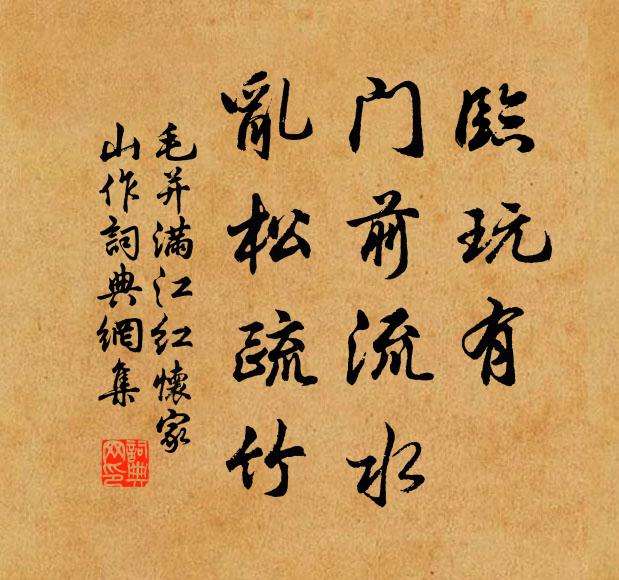 臨玩有
门前流水
亂松疏竹
毛并满江红懷家
山作詞典網集
詞典网印